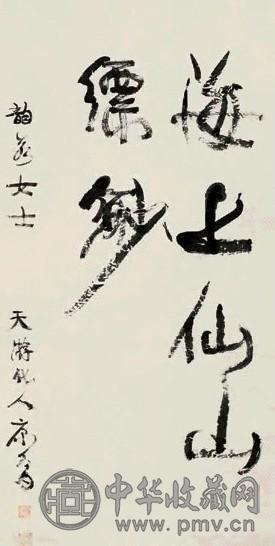 海上仙山
縹緲
韻女士
天游化人康有為
中华收藏网
www.pmv.cn